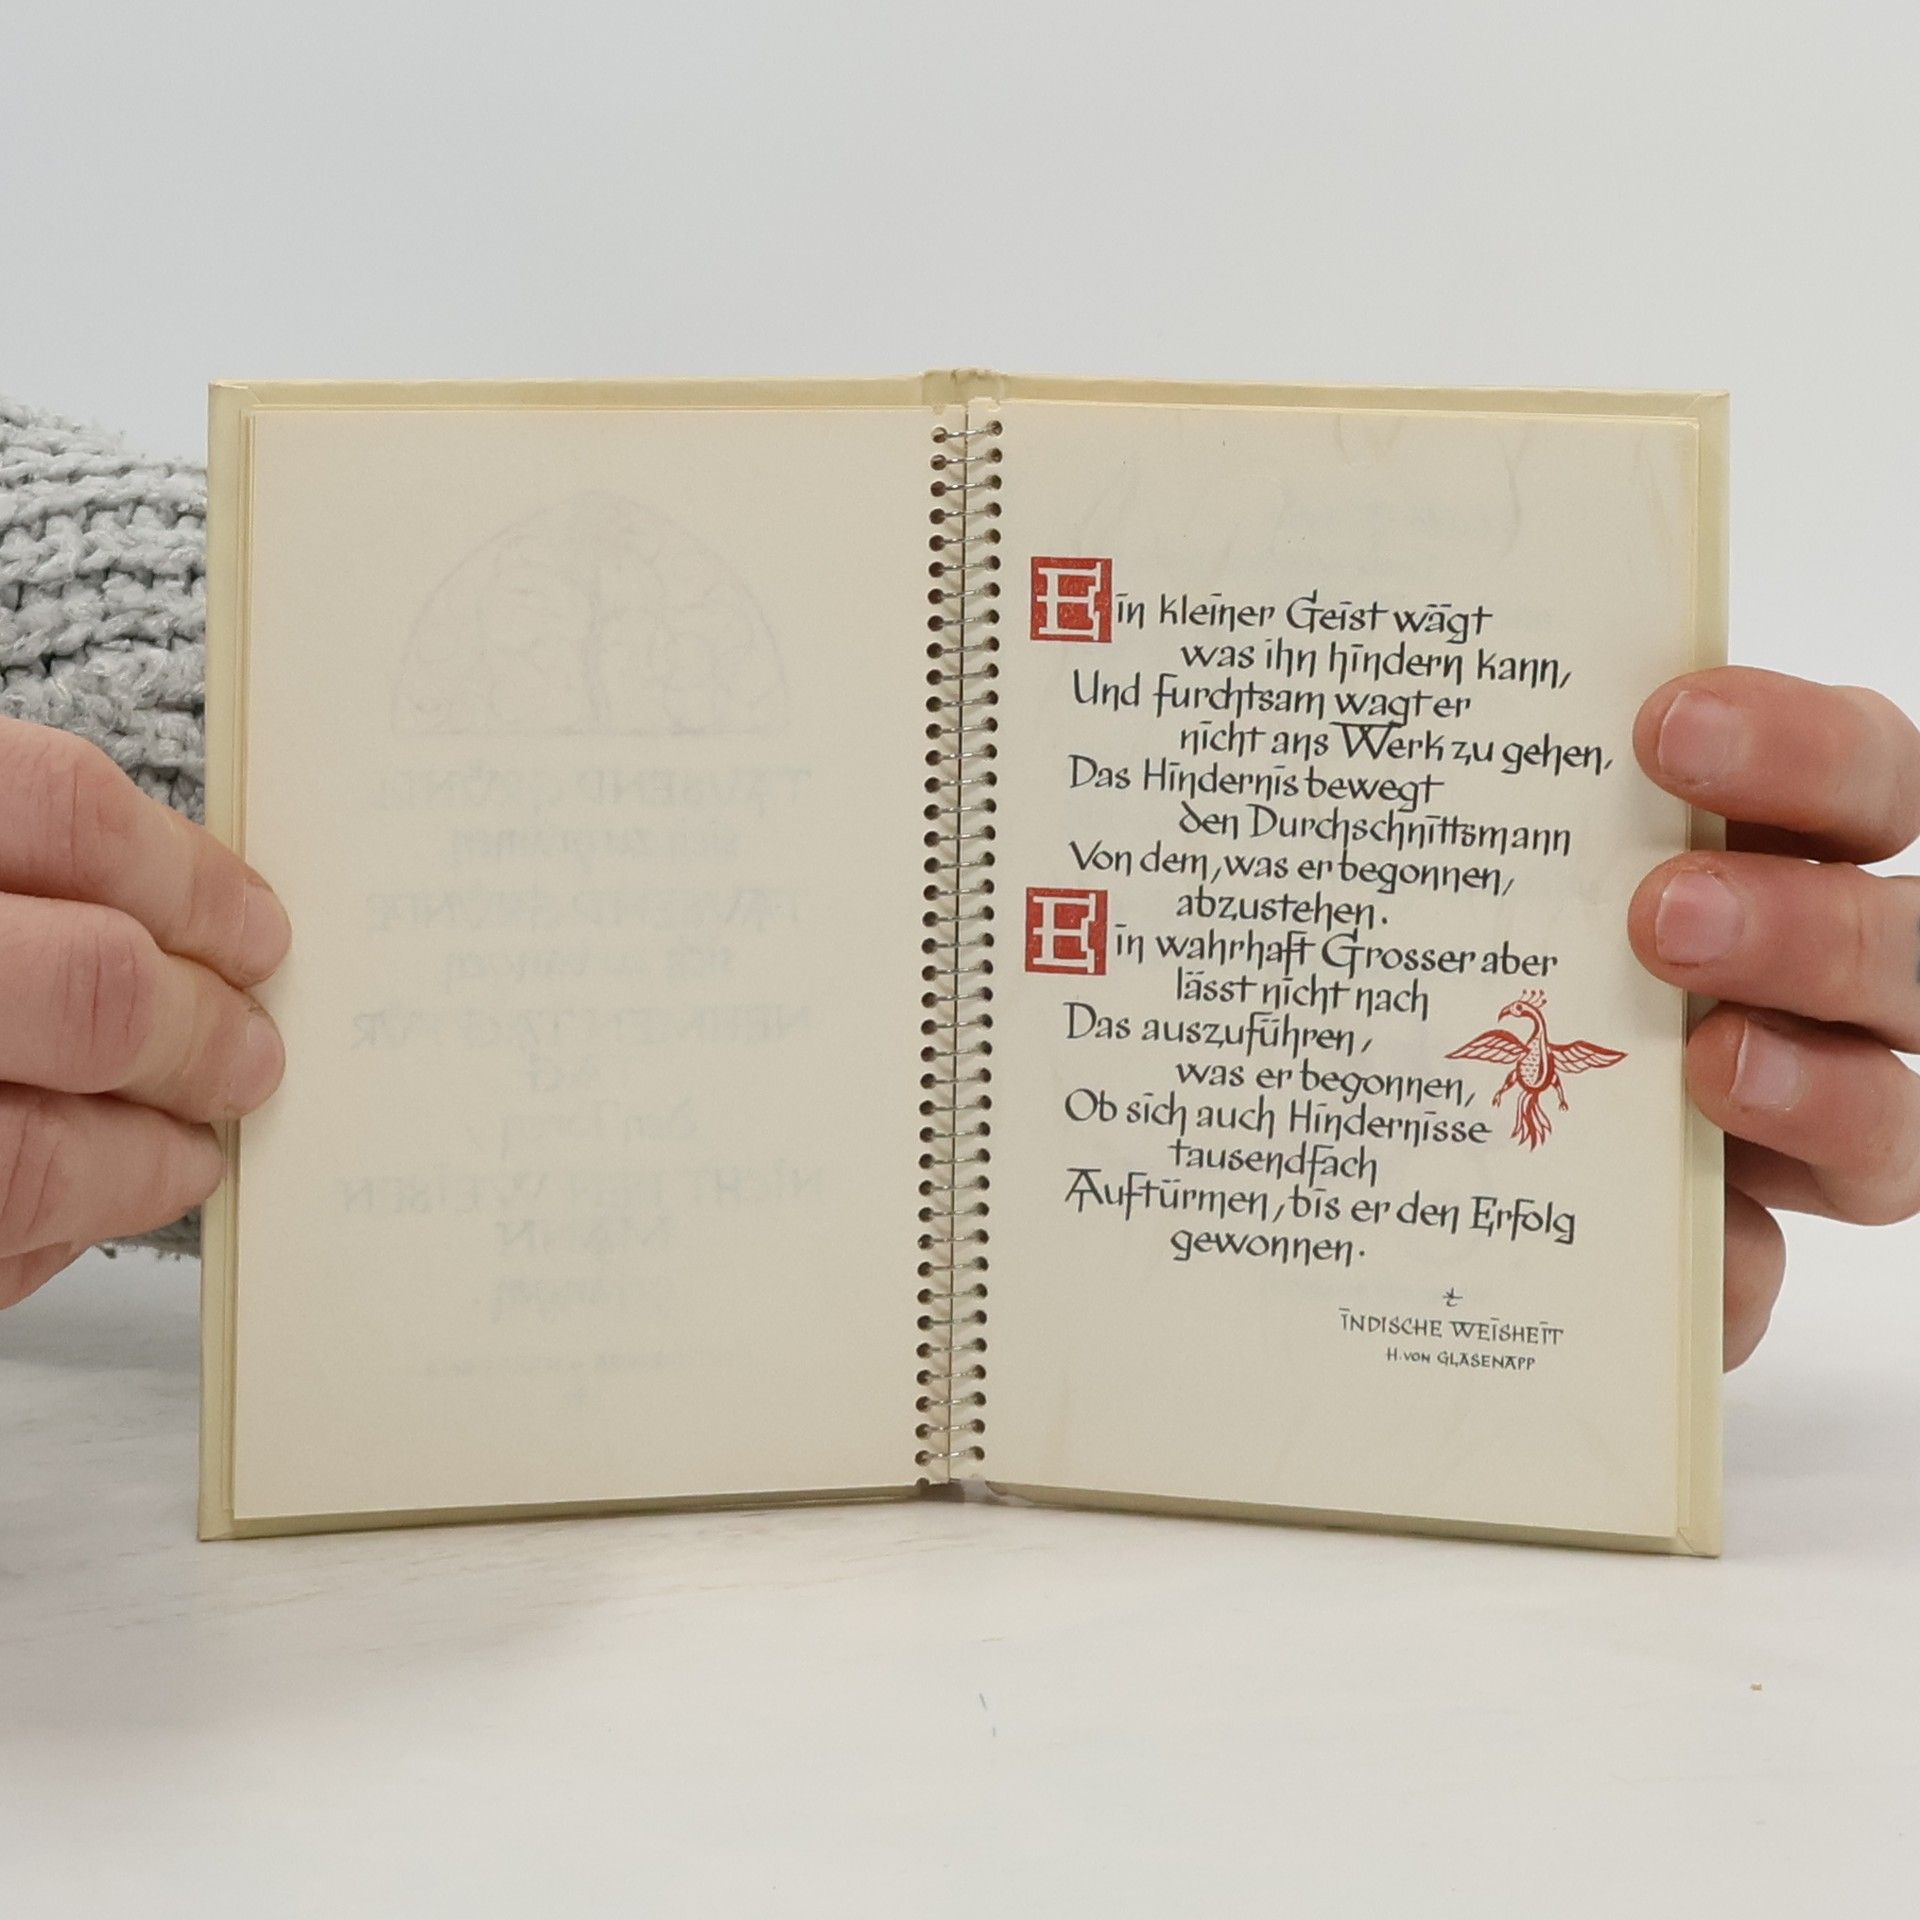 Ein kleiner Geist wägt
was ihn hindern kann,
Und furchtsam wagt er
nicht ans Werk zu gehen,
Das Hindernis bewegt
den Durchschnittsmann
Von dem, was er begonnen,
abzustehen.
Ein wahrhaft Grosser aber
lässt nicht nach
Das auszuführen,
was er begonnen,
Ob sich auch Hindernisse
tausendfach
Auftürmen, bis er den Erfolg
gewonnen.
INDISCHE WEISHEIT
H. VON GLASENAPP